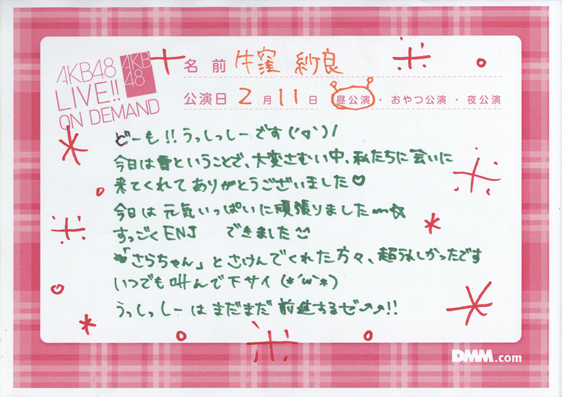 AKB48
LIVE!!
ON DEMAND
AKB
48
名前 牛窪 紗良
公演日 2月11日 昼公演・おやつ公演・夜公演
どーも!!うっしっしーです('q')/
今日は雪ということで、大変さむい中、私たちに会いに
来てくれてありがとうございました♡
今日は元気いっぱいに頑張りました〜☆
すっごくENJ できました
"さらちゃん」とさけんでくれた方々、超うれしかったです
いつでも叫んで下サイ(*´ω`*)
うっしっしーはまだまだ前進するゼ↗↗!!
DMM.com